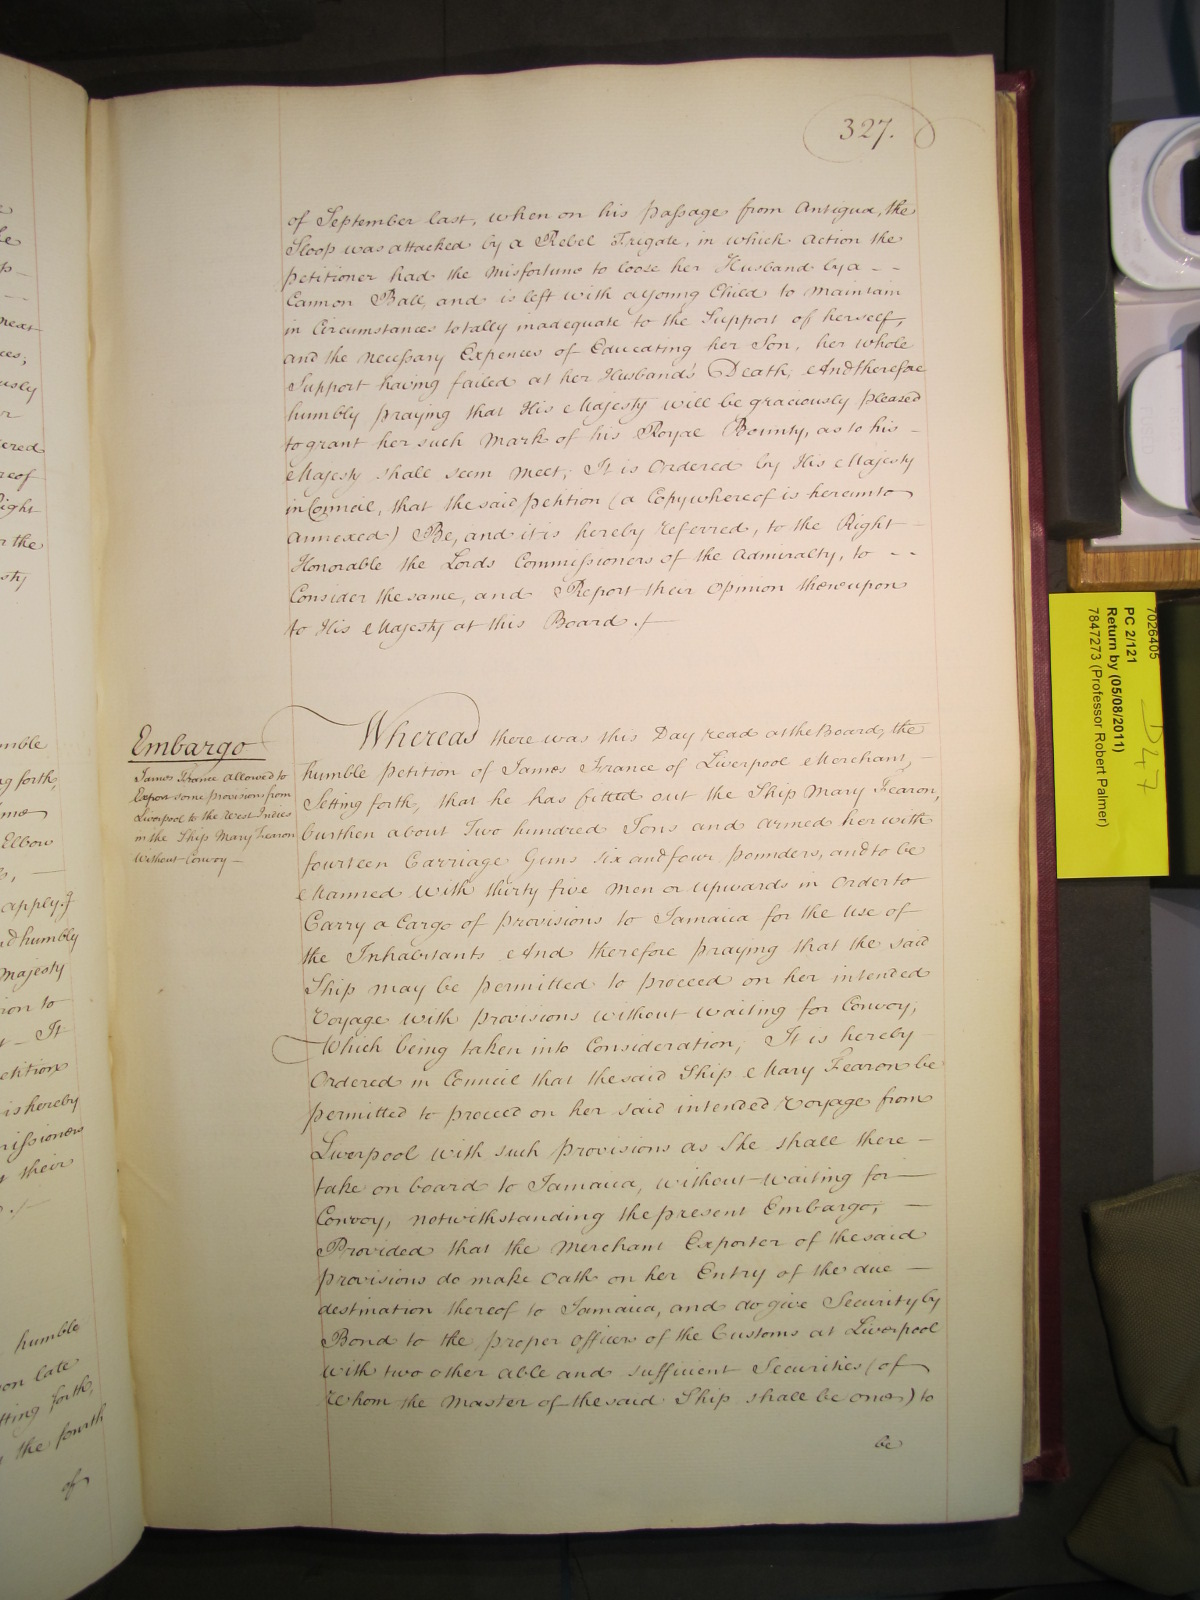 327.
of September last, when on his passage from Antigua, the
Sloop was attacked by a Rebel Frigate, in which action the
Petitioner had the Misfortune to loose her Husband by a - -
Cannon Ball, and is left with a young Child to Maintain
in Circumstances totally inadequate to the Support of herself,
and the necessary Expences of Educating her Son, her whole
Support having failed at her Husband's Death; And therefore
humbly praying that His Majesty will be graciously Pleased
to grant her such Mark of his Royal Bounty, as to his -
Majesty shall seem meet; It is Ordered by His Majesty
in Council, that the said Petition (a Copy whereof is hereunto
annexed) Be, and it is hereby referred, to the Right
Honorable the Lords Commissioners of the Admiralty, to - -
Consider the same, and Report their Opinion thereupon
to His Majesty at this Board ./
Embargo
James France allowed to
Export some provisions from
Liverpool to the West Indies
in the Ship Mary Fearon
without Convoy —
Whereas there was this Day read at the Board, the
humble Petition of James France of Liverpool Merchant, -
Setting forth, that he has fitted out the Ship Mary Fearon,
burthen about Two hundred Tons and armed her with
fourteen Carriage Guns six and four pounders, and to be
Manned with thirty five Men or upwards in Order to
Carry a Cargo of Provisions to Jamaica for the use of
the Inhabitants And therefore praying that the said
Ship may be permitted to proceed on her intended
Voyage with provisions without waiting for Convoy;
Which being taken into Consideration; It is hereby
Ordered in Council that the said Ship Mary Fearon be
permitted to proceed on her said intended Voyage from
Liverpool with such Provisions as She shall there —
take on board to Jamaica, without waiting for
Convoy, notwithstanding the present Embargo; —
Provided that the Merchant Exporter of the said
provisions do make Oath on her Entry of the due —
destination thereof to Jamaica, and do give Security by
Bond to the proper Officers of the Customs at Liverpool
with two other able and sufficient Securities (of
Whom the Master of the said Ship shall be one) to
be
7026405
PC 2/121
Return by (05/08/2011)
7847273 (Professor Robert Palmer)
D47
reof
Right
n the
humble
ng forth,
Elbow
apply.g
nd humbly
Majesty
ion to
- It
etition
is hereby
missioners
their
humble
late
tting forth,
the fourth
of